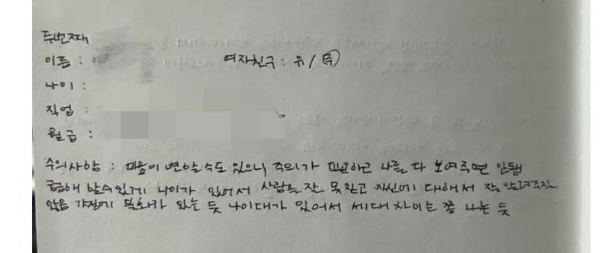 두번째
이름 :
여자친구 : 유 / 무
나이 :
직업 :
월급 :
주의사항 : 마음이 변할수도 있으니 주의가 필요하고 나를 다 보여주면 안됨
급해 할수있게 나이가 있어서 사람을 잘 못믿고 자신에 대해서 잘 알려주지
않음 가정에 불화가 있는 듯 나이대가 있어서 세대 차이는 좀 나는 듯